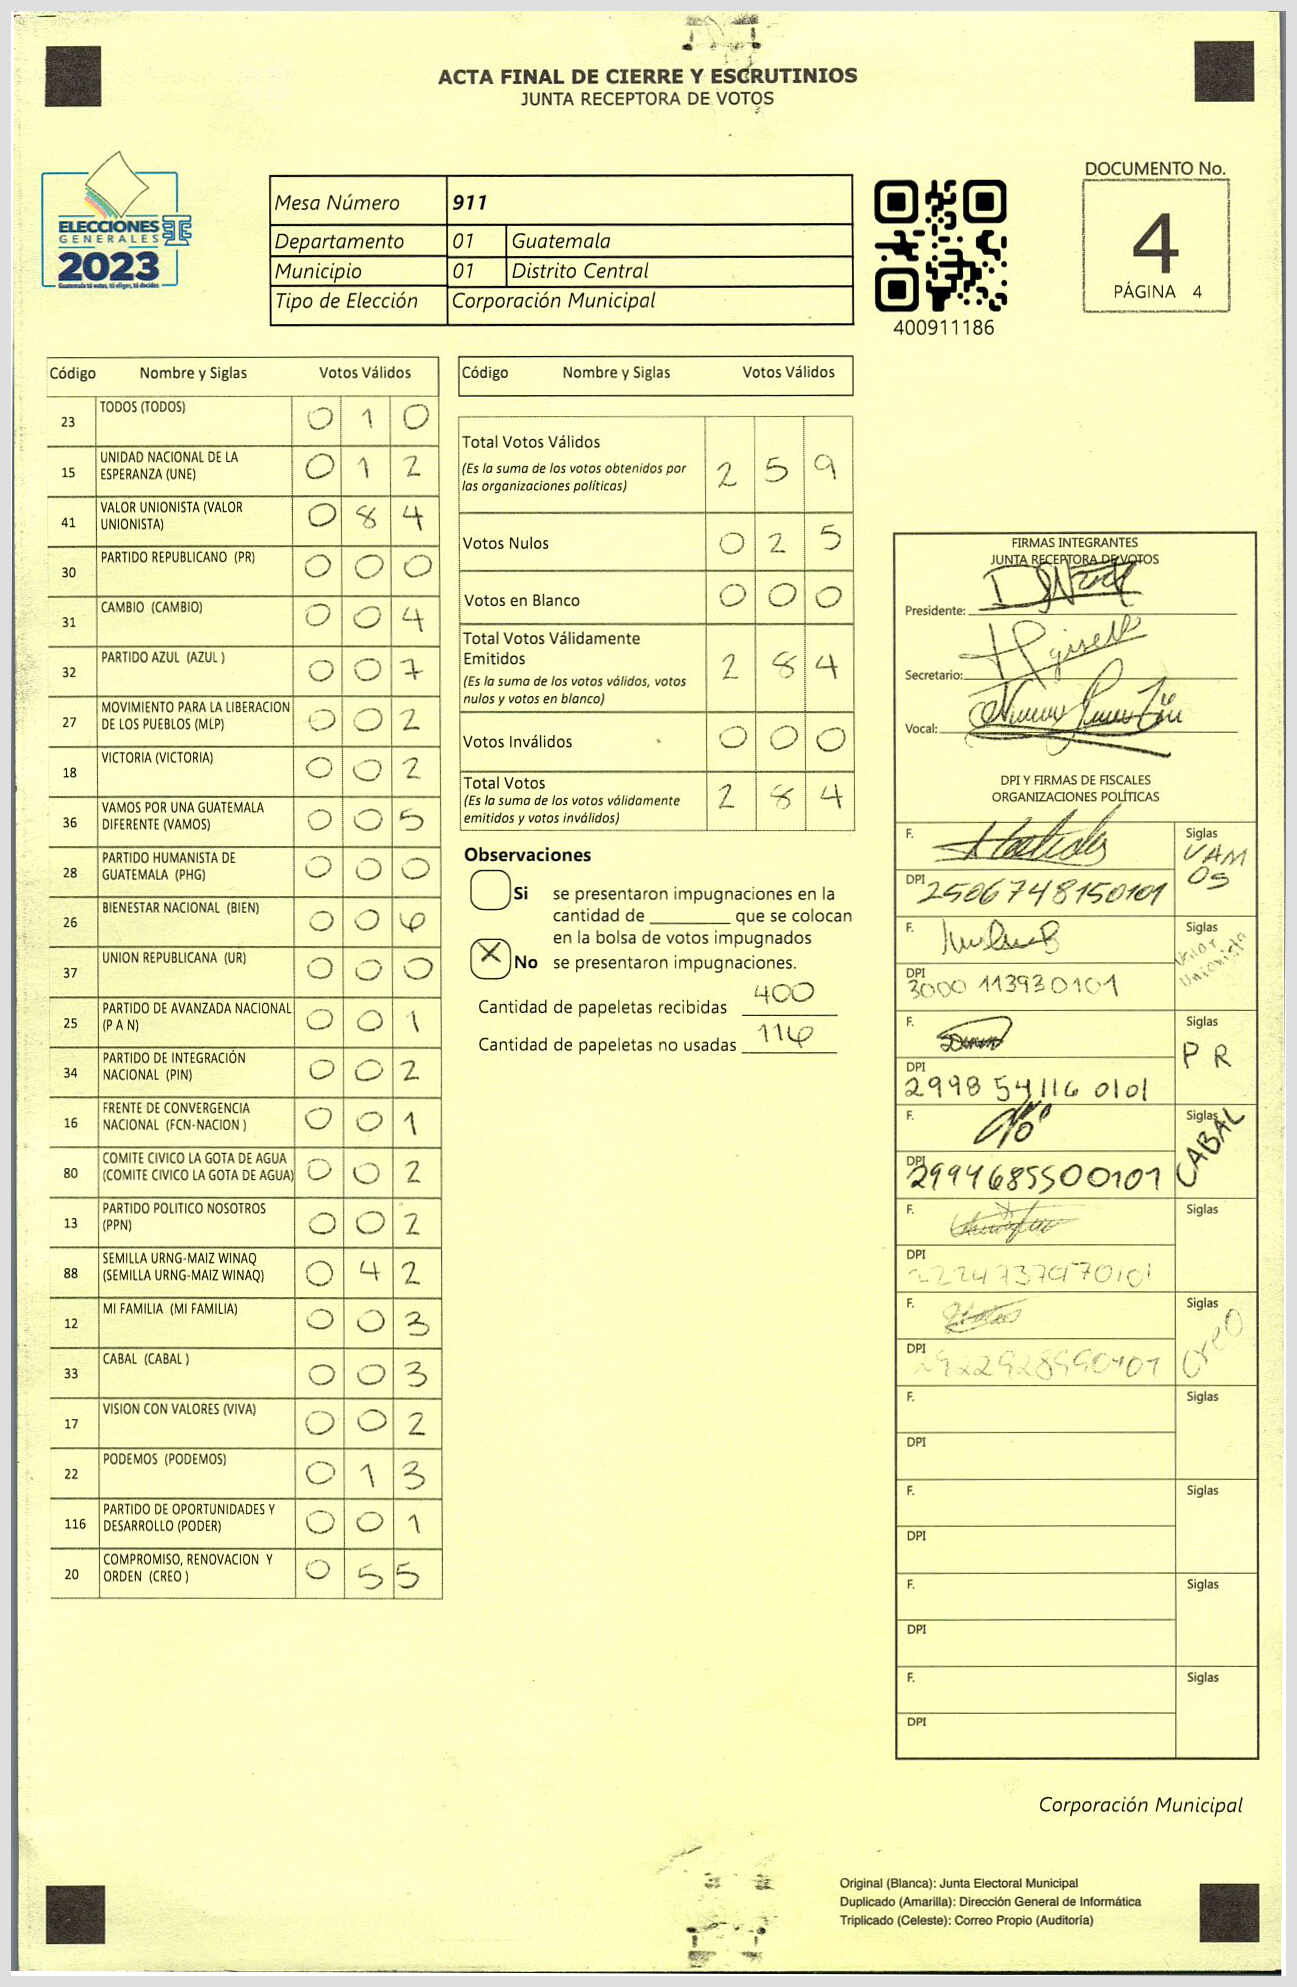 ACTA FINAL DE CIERRE Y ESCRUTINIOS
JUNTA RECEPTORA DE VOTOS
ELECCIONES
GENERALES
2023
Guatemala tú votas, tú eliges, tú decides
Mesa Número 911
Departamento 01 Guatemala
Municipio 01 Distrito Central
Tipo de Elección Corporación Municipal
400911186
DOCUMENTO No.
4
PÁGINA 4
Código Nombre y Siglas Votos Válidos
23 TODOS (TODOS) 0 1 0
15 UNIDAD NACIONAL DE LA
ESPERANZA (UNE) 0 1 2
41 VALOR UNIONISTA (VALOR
UNIONISTA) 0 8 4
30 PARTIDO REPUBLICANO (PR) 0 0 0
31 CAMBIO (CAMBIO) 0 0 4
32 PARTIDO AZUL (AZUL ) 0 0 7
27 MOVIMIENTO PARA LA LIBERACION
DE LOS PUEBLOS (MLP) 0 0 2
18 VICTORIA (VICTORIA) 0 0 2
36 VAMOS POR UNA GUATEMALA
DIFERENTE (VAMOS) 0 0 5
28 PARTIDO HUMANISTA DE
GUATEMALA (PHG) 0 0 0
26 BIENESTAR NACIONAL (BIEN) 0 0 6
37 UNION REPUBLICANA (UR) 0 0 0
25 PARTIDO DE AVANZADA NACIONAL
(P A N) 0 0 1
34 PARTIDO DE INTEGRACIÓN
NACIONAL (PIN) 0 0 2
16 FRENTE DE CONVERGENCIA
NACIONAL (FCN-NACION ) 0 0 1
80 COMITE CIVICO LA GOTA DE AGUA
(COMITE CIVICO LA GOTA DE AGUA) 0 0 2
13 PARTIDO POLITICO NOSOTROS
(PPN) 0 0 2
88 SEMILLA URNG-MAIZ WINAQ
(SEMILLA URNG-MAIZ WINAQ) 0 4 2
12 MI FAMILIA (MI FAMILIA) 0 0 3
33 CABAL (CABAL ) 0 0 3
17 VISION CON VALORES (VIVA) 0 0 2
22 PODEMOS (PODEMOS) 0 1 3
116 PARTIDO DE OPORTUNIDADES Y
DESARROLLO (PODER) 0 0 1
20 COMPROMISO, RENOVACION Y
ORDEN (CREO ) 0 5 5
Código Nombre y Siglas Votos Válidos
Total Votos Válidos 2 5 9
(Es la suma de los votos obtenidos por
las organizaciones políticas)
Votos Nulos 0 2 5
Votos en Blanco 0 0 0
Total Votos Válidamente
Emitidos 2 8 4
(Es la suma de los votos válidos, votos
nulos y votos en blanco)
Votos Inválidos 0 0 0
Total Votos 2 8 4
(Es la suma de los votos válidamente
emitidos y votos inválidos)
Observaciones
Si se presentaron impugnaciones en la
cantidad de ________ que se colocan
en la bolsa de votos impugnados
X No se presentaron impugnaciones.
Cantidad de papeletas recibidas 400
Cantidad de papeletas no usadas 116
FIRMAS INTEGRANTES
JUNTA RECEPTORA DE VOTOS
Presidente:
Secretario:
Vocal:
DPI Y FIRMAS DE FISCALES
ORGANIZACIONES POLÍTICAS
F. Siglas
VAM
OS
DPI 2506748150101
F. Siglas
Valor
Unionista
DPI
3000 113930101
F. Siglas
P R
DPI
2998 54116 0101
F. Siglas
CABAL
DPI
2994685500101
F. Siglas
DPI
F. Siglas
Creo
DPI
F. Siglas
DPI
F. Siglas
DPI
F. Siglas
DPI
F. Siglas
DPI
Corporación Municipal
Original (Blanca): Junta Electoral Municipal
Duplicado (Amarilla): Dirección General de Informática
Triplicado (Celeste): Correo Propio (Auditoría)